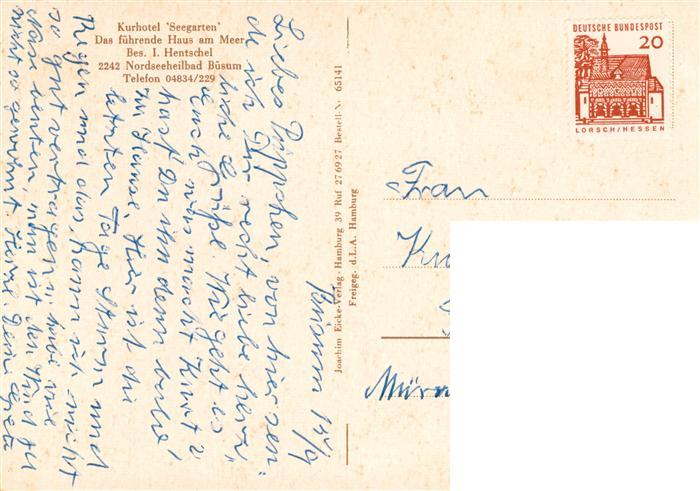 Kurhotel 'Seegarten'
Das führende Haus am Meer
Bes. I. Hentschel
2242 Nordseeheilbad Büsum
Telefon 04834/229
Büsum 15/9
Liebes Püppchen, von hier sen-
de ich Dir recht liebe herz-
liche Grüße. Wie geht es
Euch was macht Kurt?
hast Du ihn denn bald
zu Hause, Hier ist die
letzten Tage Sturm und
Regen und das kann ich nicht
so gut vertragen, habe viel
Nasebluten, man ist den Wind ja
nicht so gewöhnt. Herzl. Deine Greta
Joachim Eicke-Verlag · Hamburg 39 Ruf 276927 Bestell-Nr. 65141
Freigeg. d.L.A. Hamburg
DEUTSCHE BUNDESPOST
20
LORSCH/HESSEN
Frau